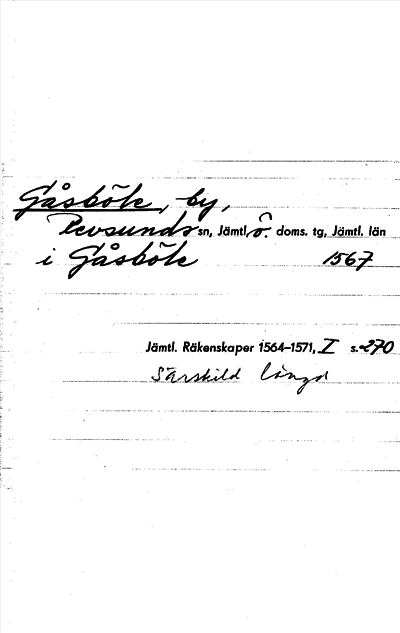 Gåsböle, by,
Revsunds sn, Jämtl, ö. doms. tg, Jämtl. län
i Gåsböle 1567
Jämtl. Räkenskaper 1564–1571, I s. 270
Särskild längd